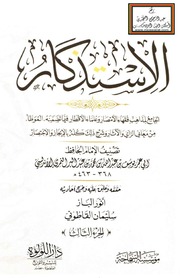 الاستذكار
الجامع لمذاهب فقهاء الأمصار وعلماء الأقطار فيما تضمنه الموطأ
من معاني الرأي والآثار وشرح ذلك كله بالإيجاز والاختصار
تصنيف الإمام الحافظ
أبي عمر يوسف بن عبد الله بن محمد بن عبد البر النمري الأندلسي
٣٦٨ - ٤٦٣ هـ
حققه وعلق عليه وخرج أحاديثه
أنور الباز
سليمان القاطوني
الجزء الثالث
دار اللؤلؤة